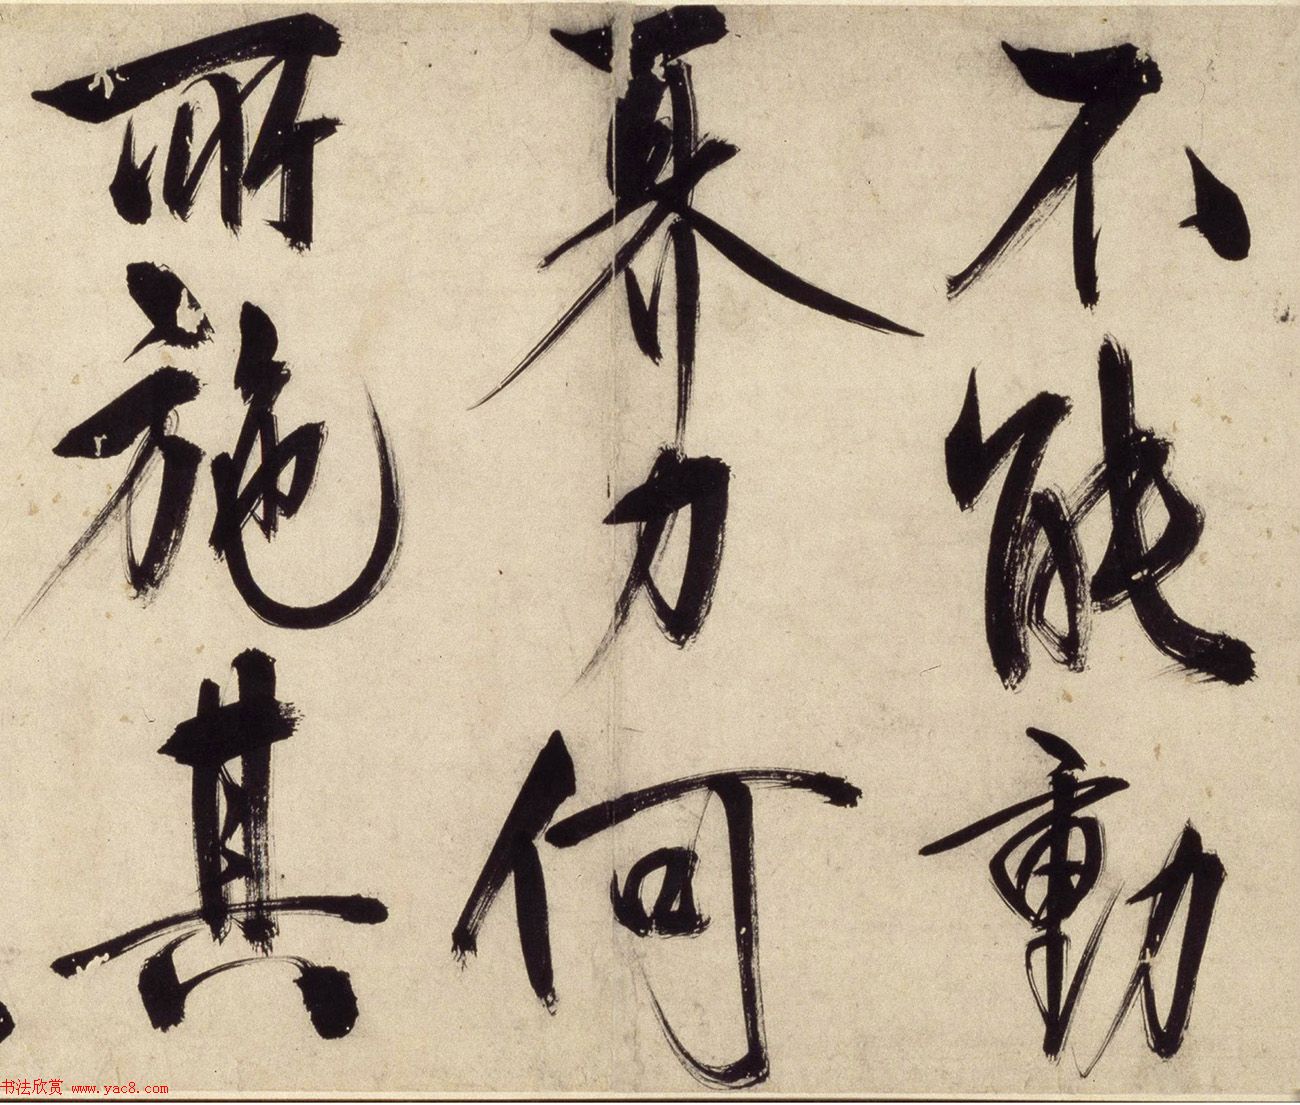 不能動
奡力何
所施其
书法欣赏 www.yac8.com